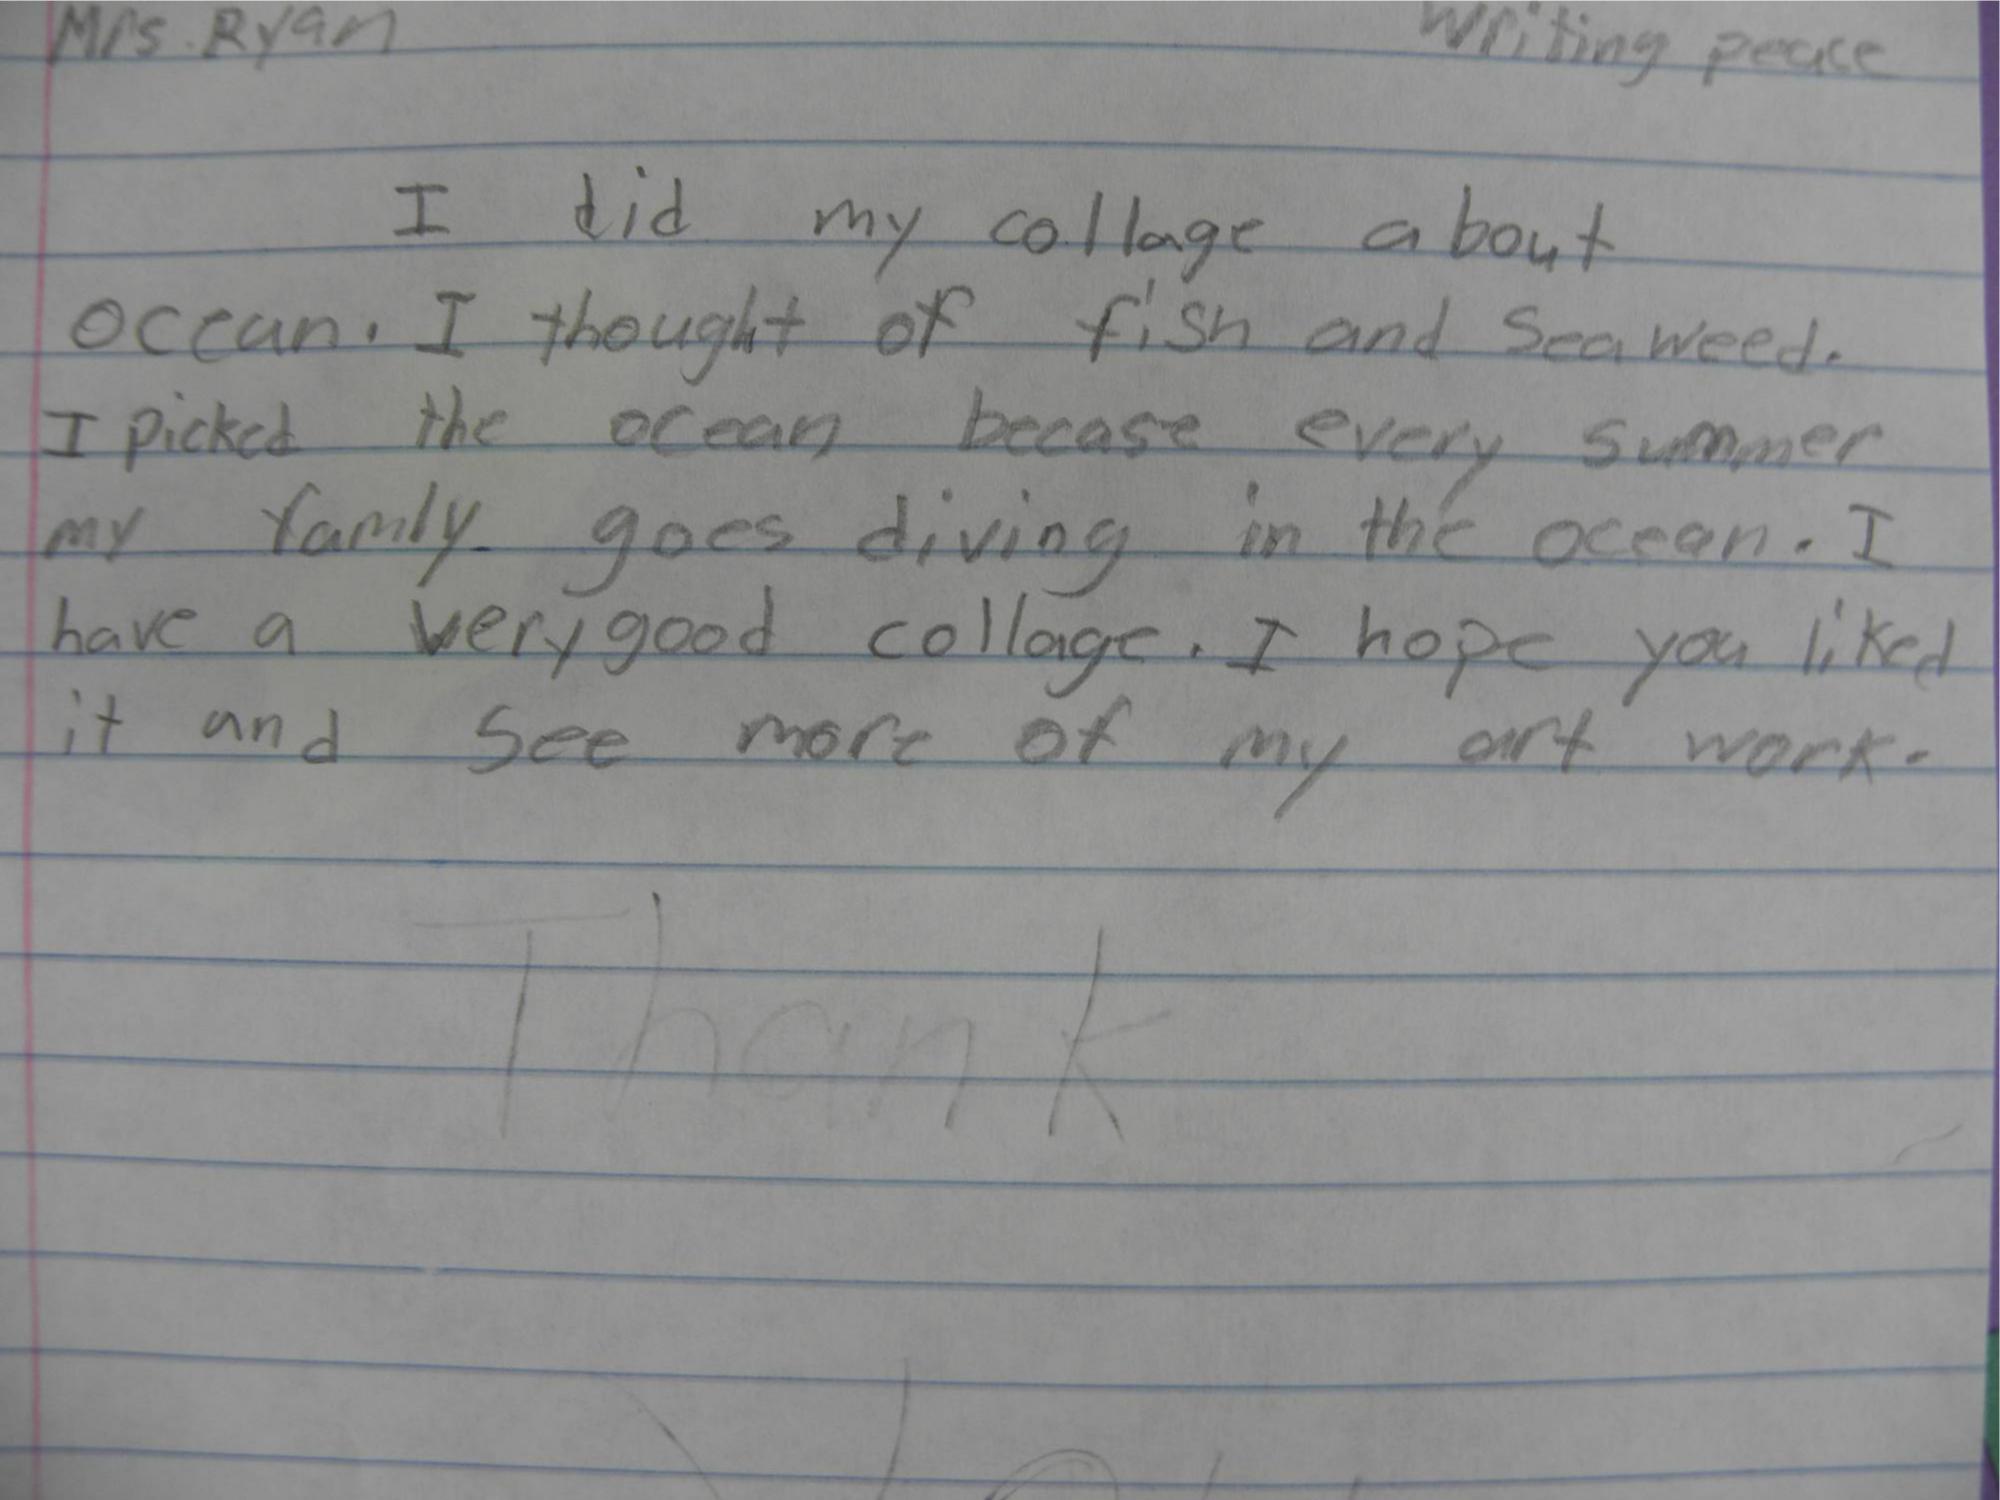 Mrs. Ryan
Writing peace
I did my collage about
ocean. I thought of fish and Seaweed.
I picked the ocean becase every summer
my famly goes diving in the ocean. I
have a very good collage. I hope you liked
it and See more of my art work.
Thank